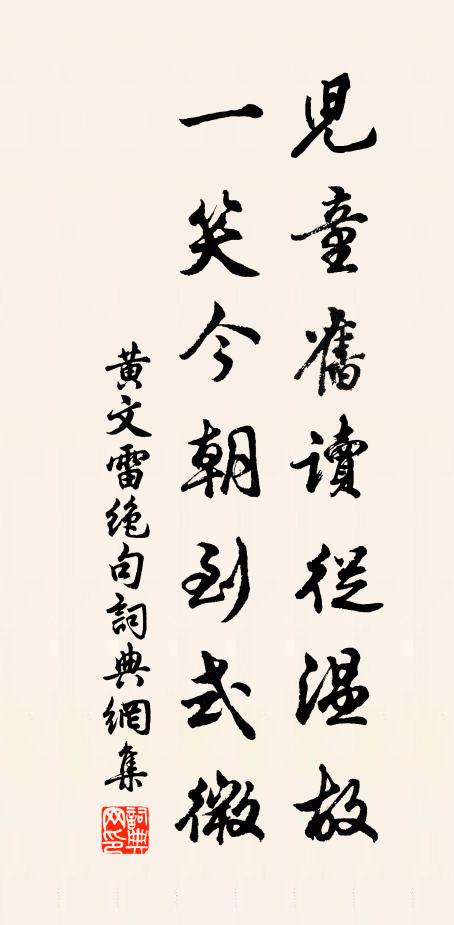 兒童舊讀從温故
一笑今朝到式微
黃文雷絶句詞典網集
詞典網印